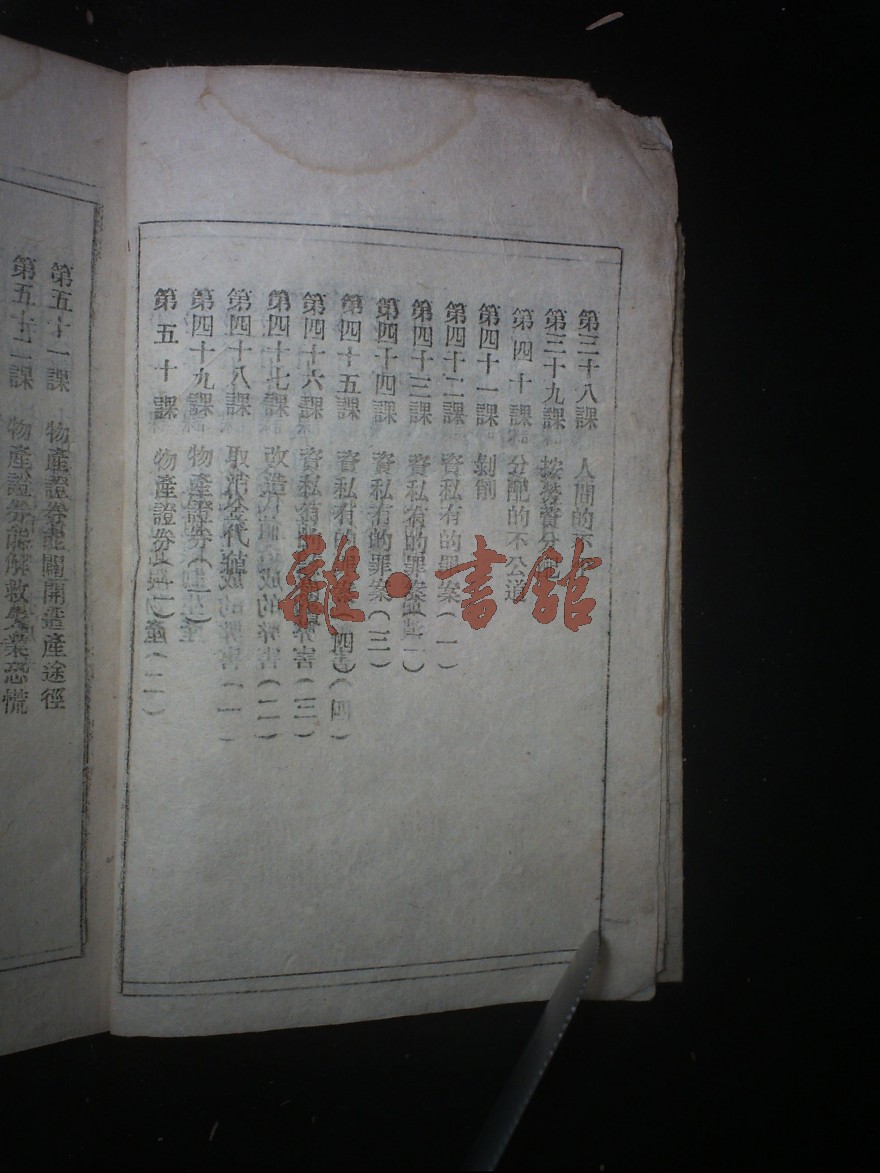 第三十八課 人間的不
第三十九課 按勞資分配
第四十課 分配的不公道
第四十一課 剝削
第四十二課 資私有的罪案（一）
第四十三課 資私有的罪案（二）
第四十四課 資私有的罪案（三）
第四十五課 資私有的罪案（四）
第四十六課 資私有
第四十七課 改造 成的弊害（二）
第四十八課 取消金代值 的弊害（一）
第四十九課 物產證券（一）
第五十課 物產證券（二）
第五十一課 物產證券 開造產途徑
第五十二課 物產證券能解救失業恐慌
雜·書館